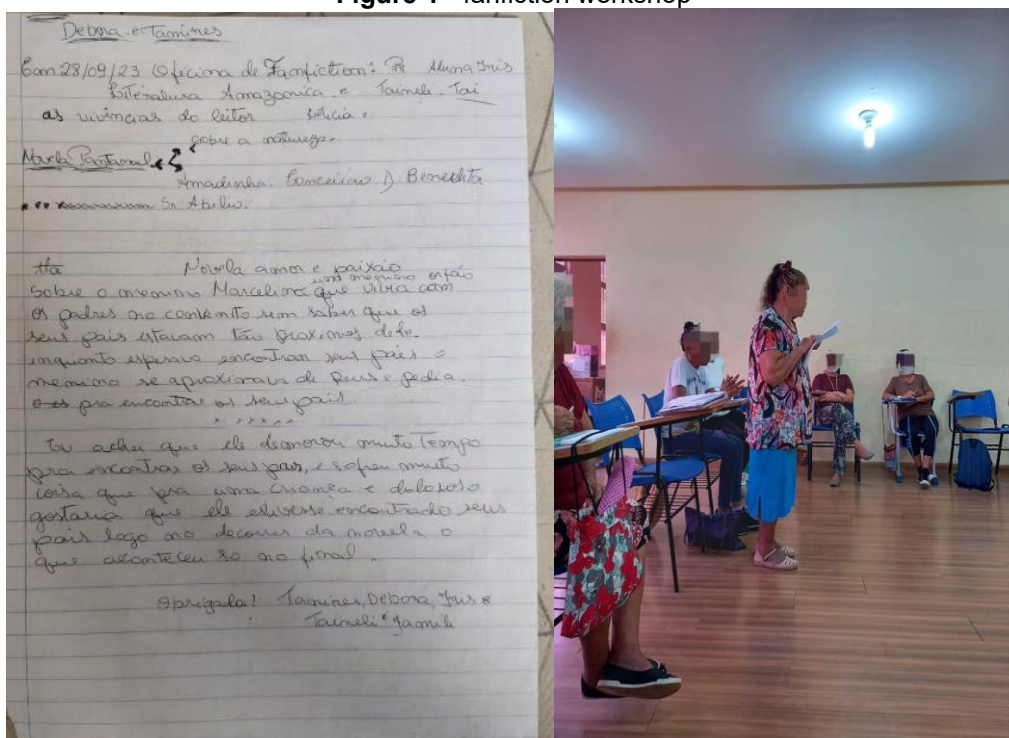 Figure 1 - fanfiction workshop
Debora e Tamires
Com 28/09/23 Oficina de Fanfiction: Aluna Iris
Literatura Amazonica e Taineli Tai
as vivências do leitor
sobre a natureza.
Maria Pantanal
Amadinha Conceicao D Benedita
Sr Abilio.
Novela amor e paixão
um menino orfão
Sobre o menino Marcelino que vivia com
os padres no convento sem saber que os
seus pais estavam tão proximos dele.
enquanto esperava encontrar seus pais o
menino se aproximava de Deus e pedia.
pra encontrar os seus pais.
Eu achei que ele demorou muito tempo
pra encontrar os seus pais, e sofreu muito
coisa que pra uma criança e doloroso
gostaria que ele estivesse encontrado seus
pais logo no decorrer da novela o
que aconteceu so no final.
Obrigada! Tamires, Debora, Iris e
Taineli Jamile